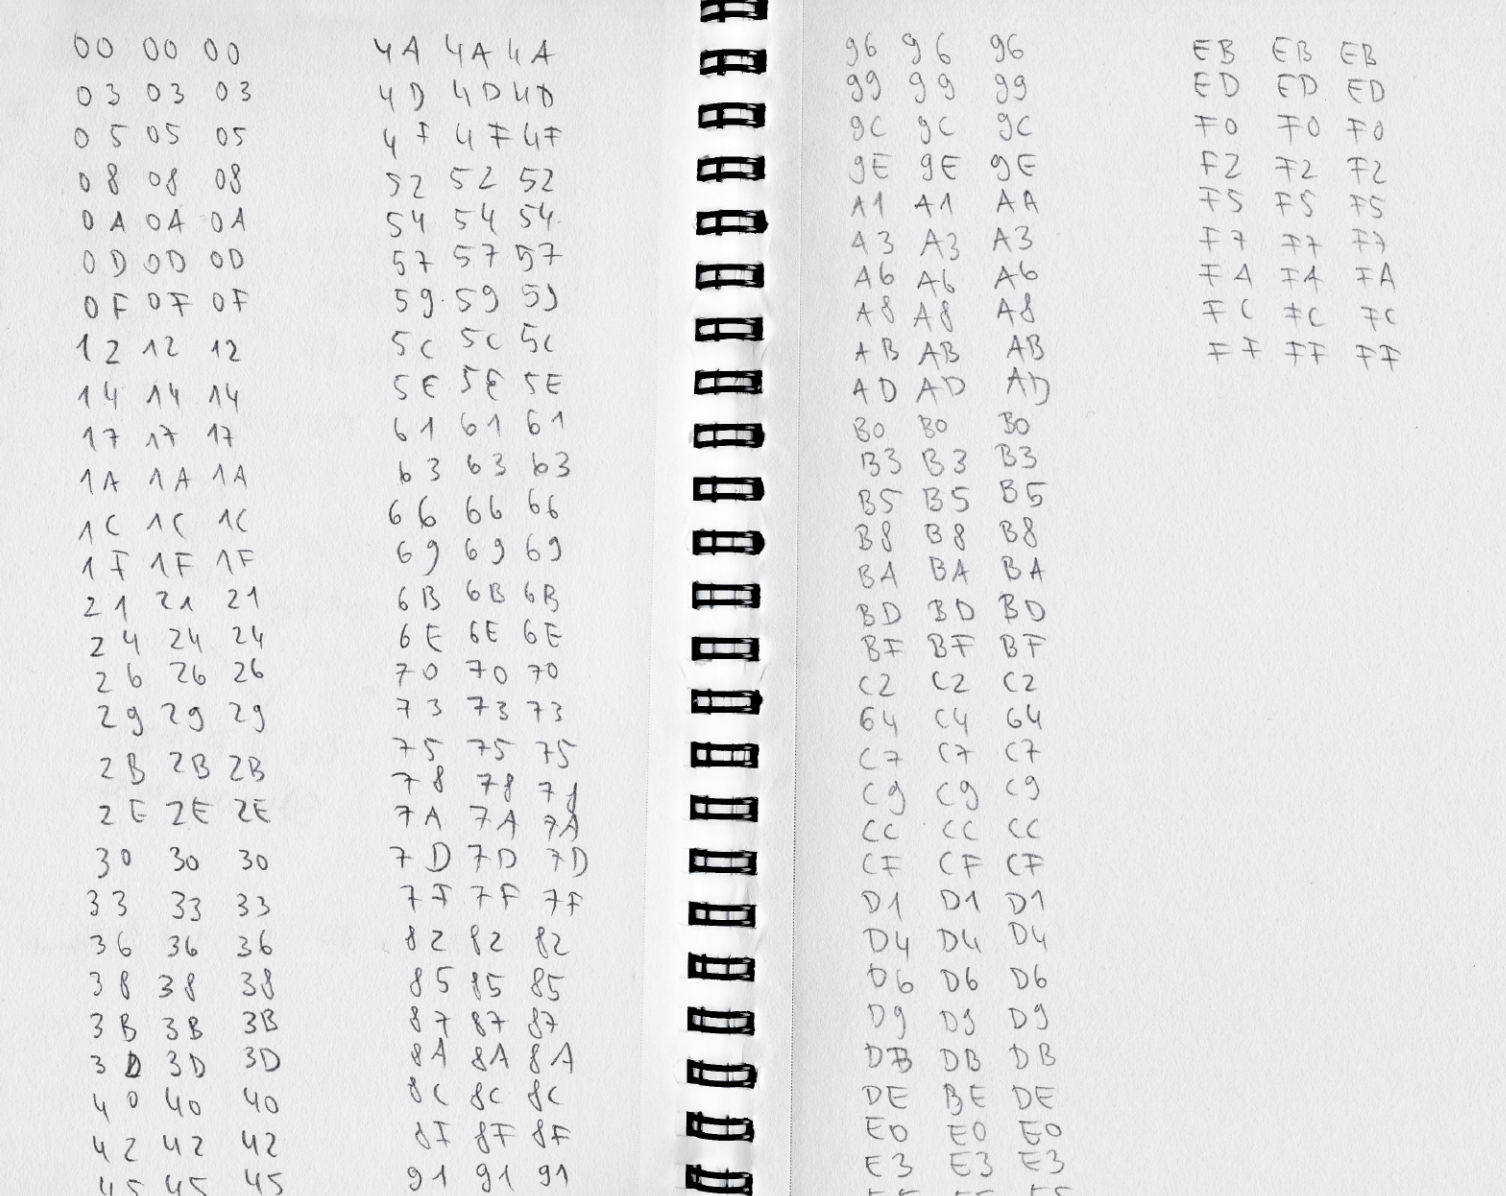 00 00 00
03 03 03
05 05 05
08 08 08
0A 0A 0A
0D 0D 0D
0F 0F 0F
12 12 12
14 14 14
17 17 17
1A 1A 1A
1C 1C 1C
1F 1F 1F
21 21 21
24 24 24
26 26 26
29 29 29
2B 2B 2B
2E 2E 2E
30 30 30
33 33 33
36 36 36
38 38 38
3B 3B 3B
3D 3D 3D
40 40 40
42 42 42
45 45 45
4A 4A 4A
4D 4D 4D
4F 4F 4F
52 52 52
54 54 54
57 57 57
59 59 59
5C 5C 5C
5E 5E 5E
61 61 61
63 63 63
66 66 66
69 69 69
6B 6B 6B
6E 6E 6E
70 70 70
73 73 73
75 75 75
78 78 78
7A 7A 7A
7D 7D 7D
7F 7F 7F
82 82 82
85 85 85
87 87 87
8A 8A 8A
8C 8C 8C
8F 8F 8F
91 91 91
96 96 96
99 99 99
9C 9C 9C
9E 9E 9E
A1 A1 AA
A3 A3 A3
A6 A6 A6
A8 A8 A8
AB AB AB
AD AD AD
B0 B0 B0
B3 B3 B3
B5 B5 B5
B8 B8 B8
BA BA BA
BD BD BD
BF BF BF
C2 C2 C2
64 C4 64
C7 C7 C7
C9 C9 C9
CC CC CC
CF CF CF
D1 D1 D1
D4 D4 D4
D6 D6 D6
D9 D9 D9
DB DB DB
DE BE DE
E0 E0 E0
E3 E3 E3
EB EB EB
ED ED ED
F0 F0 F0
F2 F2 F2
F5 F5 F5
F7 F7 F7
FA FA FA
FC FC FC
FF FF FF